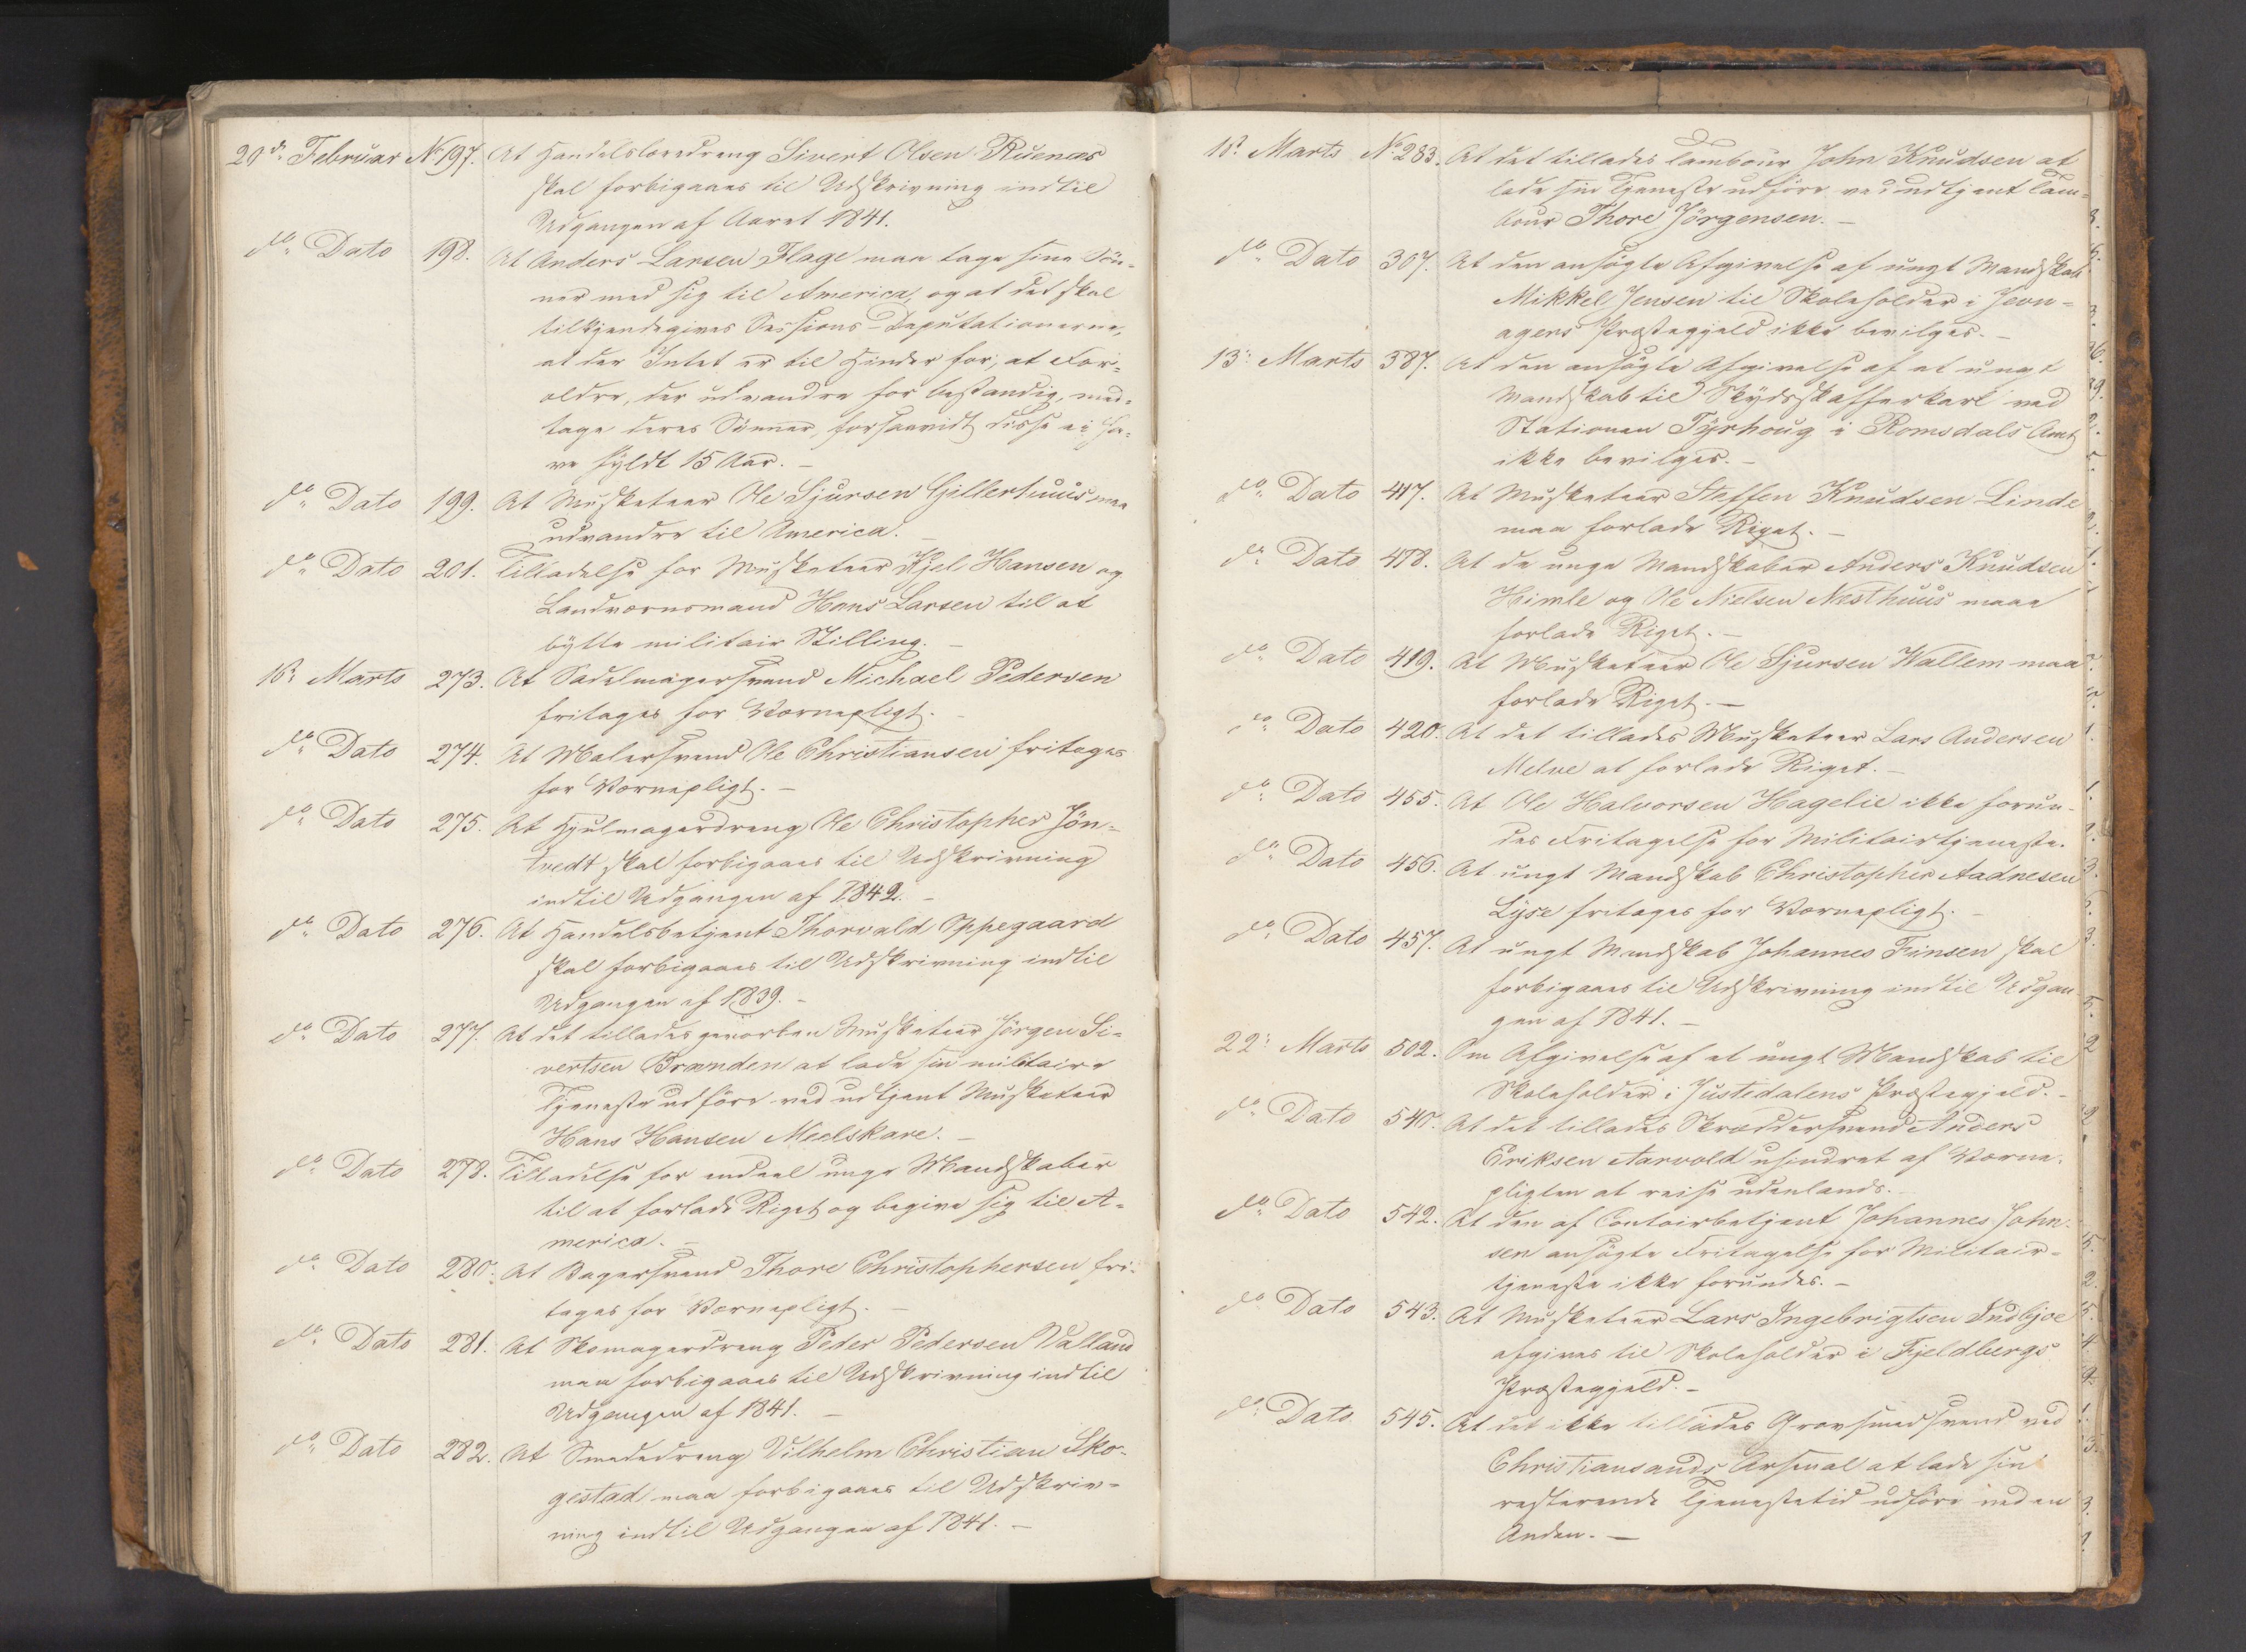 20de Februar No 197. At Handelslæredreng Sivert Olsen Ruenæs
skal forbigaaes til Udskrivning indtil
Udgangen af Aaret 1841.
do Dato 198. At Anders Larsen Flage maa tage sine Søn-
ner med sig til America, og at det skal
tilkjendegives Sessions-Deputationerne,
at der Intet er til Hinder for, at For-
ældre, der udvandre for bestandig, med-
tage deres Sønner, forsaavidt disse ei ha-
ve fyldt 15 Aar. —
do Dato 199. At Musketeer Ole Sjursen Gjillerhuus maa
udvandre til America. —
do Dato 201. Tilladelse for Musketeer Kjel Hansen og
Landværnsmand Hans Larsen til at
bytte militair Stilling. —
1ste Marts 273. At Sadelmagersvend Michael Pedersen
fritages for Værnepligt. —
do Dato 274. At Malersvend Ole Christiansen fritages
for Værnepligt. —
do Dato 275. At Hjulmagerdreng Ole Christopher Jön-
tvedt skal forbigaaes til Udskrivning
indtil Udgangen af 1842. —
do Dato 276. At Handelsbetjent Thorvald Oppegaard
skal forbigaaes til Udskrivning indtil
Udgangen af 1839. —
do Dato 277. At det tillades geworben Musketeer Jörgen Si-
vertsen Brænden at lade sin militaire
Tjeneste udføre ved udtjent Musketeer
Hans Hansen Meelskare. —
do Dato 278. Tilladelse for endeel unge Mandskaber
til at forlade Riget og begive sig til A-
merica. —
do Dato 280. At Bagersvend Thore Christophersen fri-
tages for Værnepligt. —
do Dato 281. At Skomagerdreng Peder Pedersen Valland
maa forbigaaes til Udskrivning indtil
Udgangen af 1841. —
do Dato 282. At Smededreng Vilhelm Christian Sko-
gestad maa forbigaaes til Udskriv-
ning indtil Udgangen af 1841. —
1ste Marts No 283. At det tillades Tambour John Knudsen at
lade sin Tjeneste udføre ved udtjent Tam-
bour Thore Jörgensen. —
do Dato 307. At den ansøgte Afgivelse af ungt Mandskab
Mikkel Jensen til Skoleholder i Jevn-
agers Præstegjeld ikke bevilges. —
13de Marts 387. At den ansøgte Afgivelse af et ungt
Mandskab til Skydsskafferkarl ved
Stationen Tyrhoug i Romsdals Amt
ikke bevilges. —
do Dato 417. At Musketeer Steffen Knudsen Linde
maa forlade Riget. —
do Dato 418. At de unge Mandskaber Anders Knudsen
Himle og Ole Nielsen Næsthuus maae
forlade Riget. —
do Dato 419. At Musketeer Ole Sjursen Wallem maa
forlade Riget. —
do Dato 420. At det tillades Musketeer Lars Andersen
Melve at forlade Riget. —
do Dato 455. At Ole Halvorsen Hagelie ikke forun-
des Fritagelse for Militairtjeneste.
do Dato 456. At ungt Mandskab Christopher Aadnesen
Lyse fritages for Værnepligt. —
do Dato 457. At ungt Mandskab Johannes Finsen skal
forbigaaes til Udskrivning indtil Udgan
gen af 1841. —
22de Marts 502. Om Afgivelse af et ungt Mandskab til
Skoleholder i Justedalens Præstegjeld. —
do Dato 540. At det tillades Skræddersvend Anders
Eriksen Aarvold uhindret af Værne-
pligten at reise udenlands. —
do Dato 542. At den af Contoirbetjent Johannes John-
sen ansøgte Fritagelse for Militair-
tjeneste ikke forundes. —
do Dato 543. At Musketeer Lars Ingebrigtsen Indbjoe
afgives til Skoleholder i Fjeldbergs
Præstegjeld. —
do Dato 545. At det ikke tillades Grovsmedsvend ved
Christiansands Arsenal at lade sin
resterende Tjenestetid udføre ved en
Anden. —